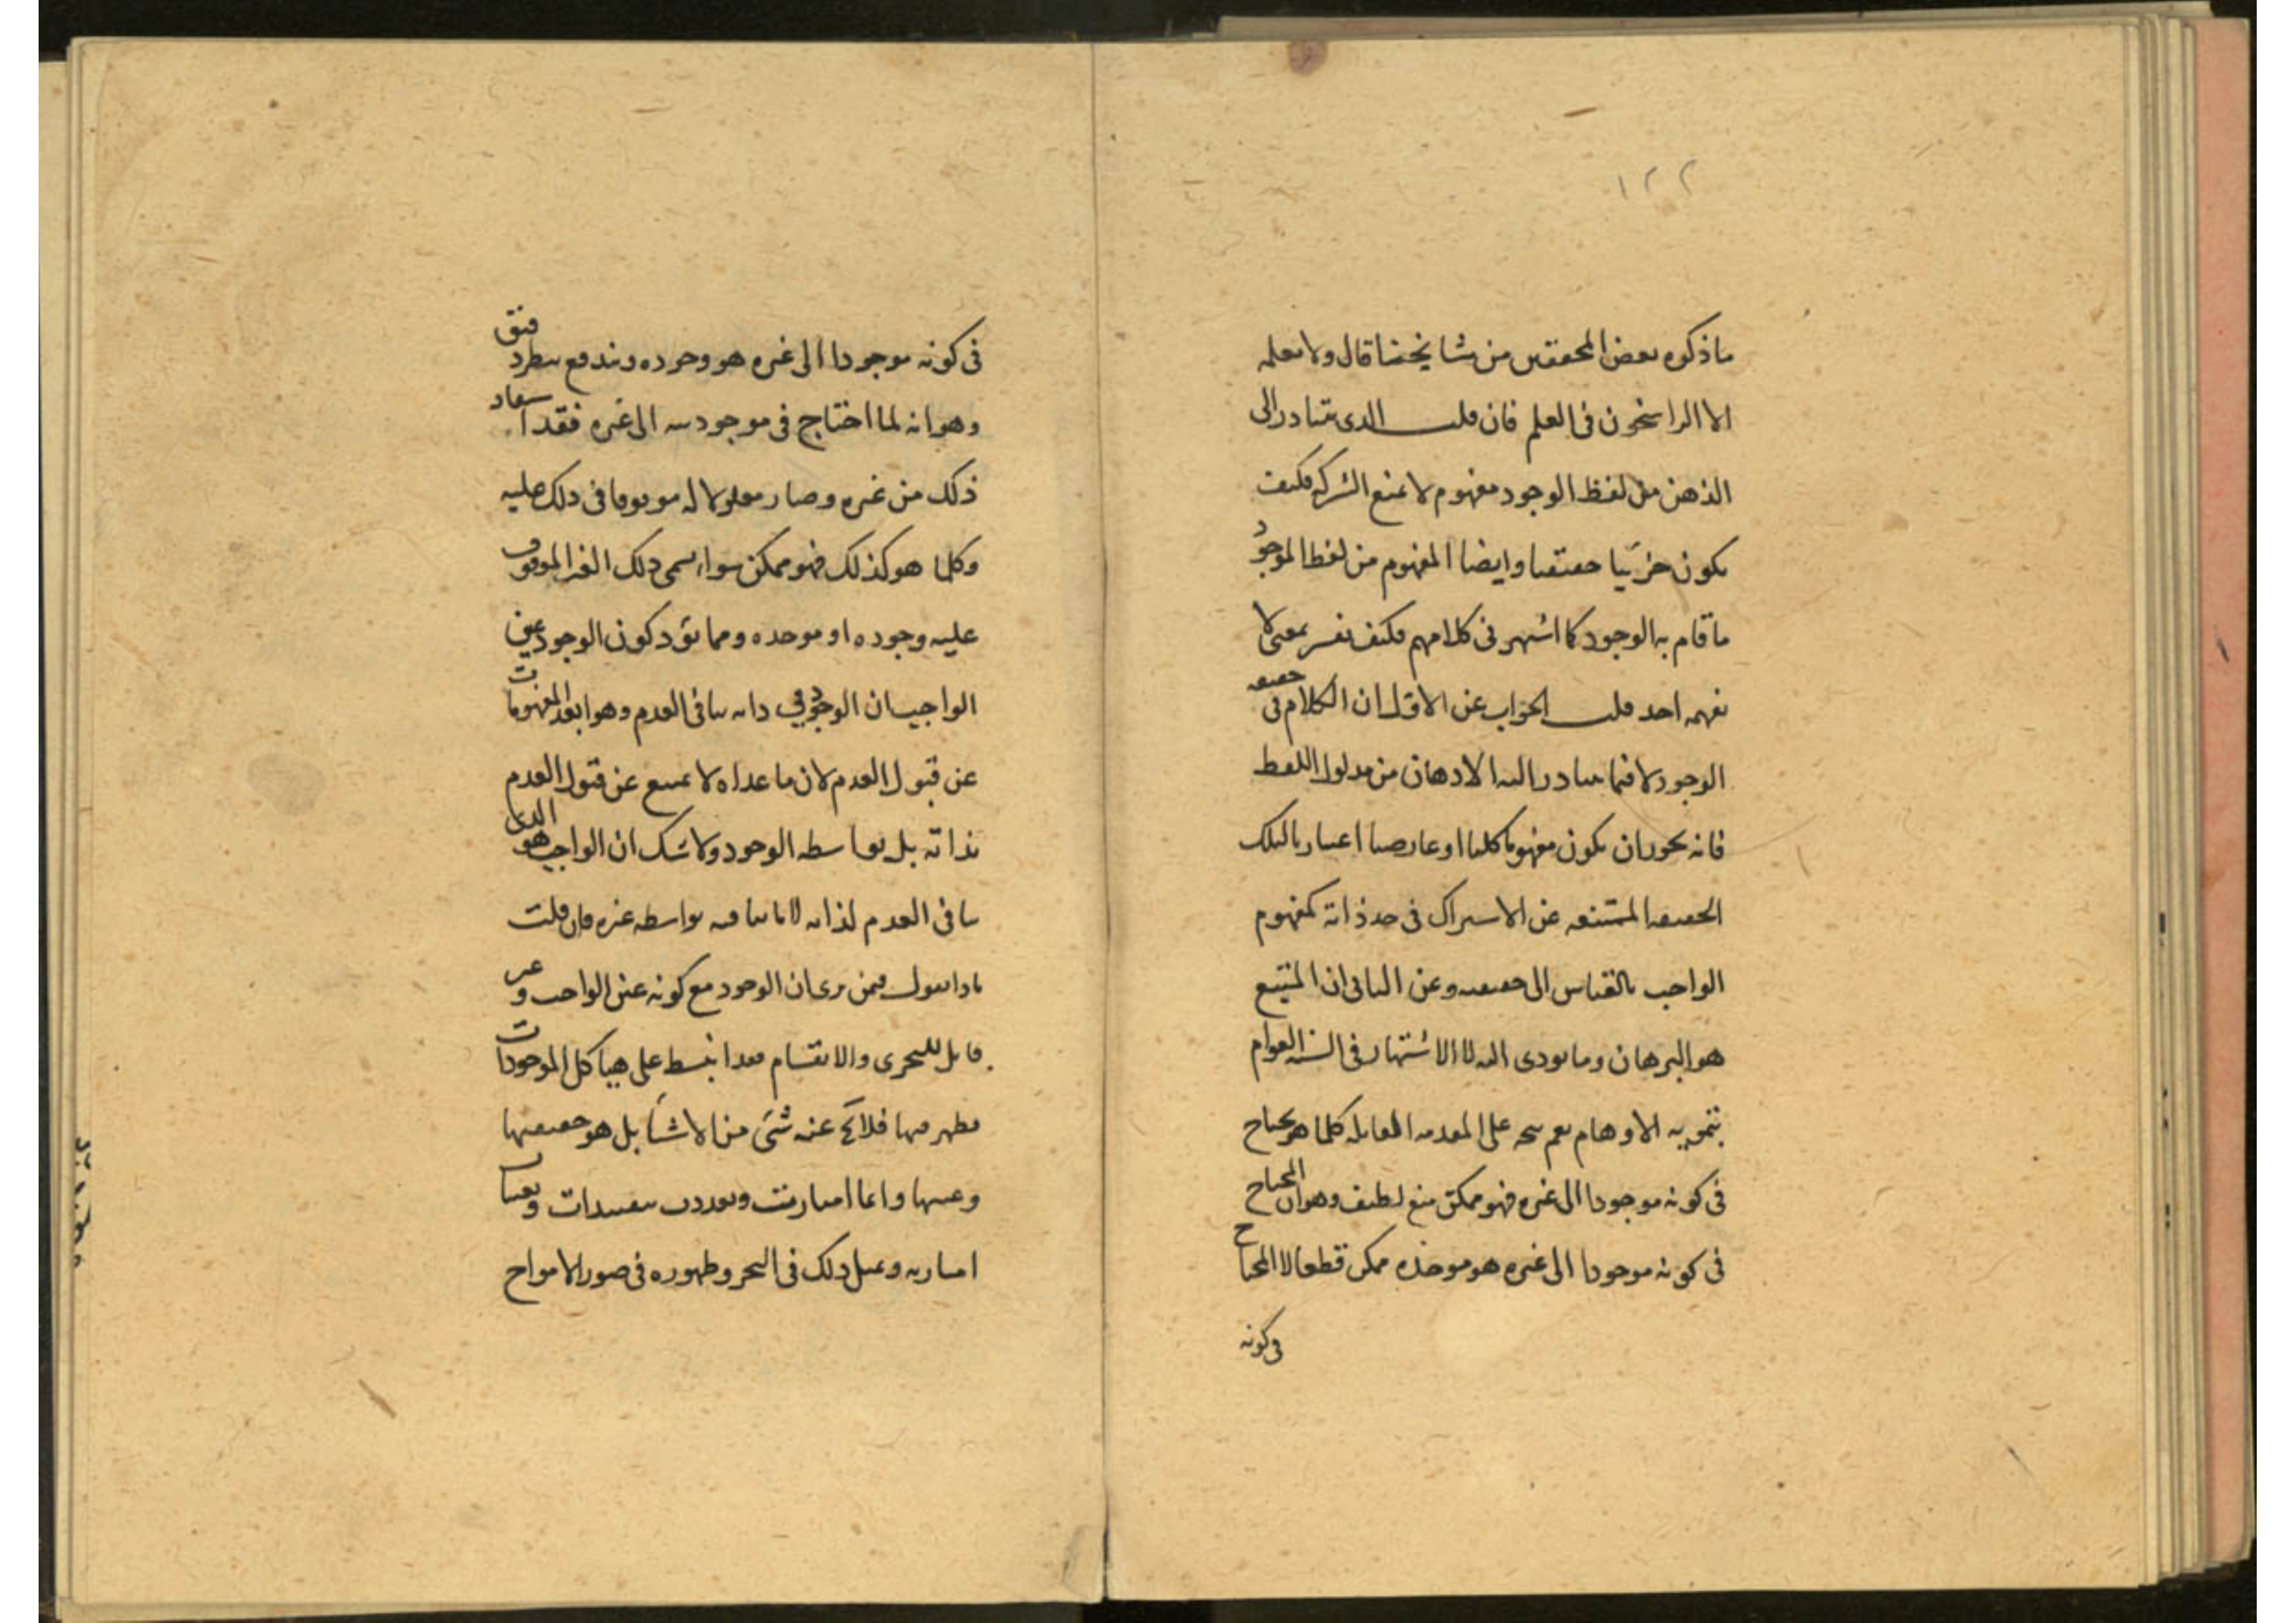 ١٢٢
ما ذكره بعض المحققين من مشايخنا قال ولا يعلمه
الا الراسخون فى العلم فان قلت الذى يتبادر الى
الذهن من لفظ الوجود مفهوم لا يمنع الشركة فكيف
يكون جزئيا حقيقيا وايضا المفهوم من لفظ الموجود
ما قام به الوجود كما اشتهر فى كلامهم فكيف يفسر بمعنى لا
يفهمه احد قلت الجواب عن الاول ان الكلام فى حقيقة
الوجود لا فيما يتبادر اليه الاذهان من مدلول اللفظ
فانه يجوز ان يكون مفهوما كليا او عارضيا اعتباريا لتلك
الحقيقة الممتنعة عن الاشتراك فى حد ذاته كمفهوم
الواجب بالقياس الى حقيقته وعن الثانى ان المتبع
هو البرهان وما يودى اليه لا الاشتهار فى السنة العوام
بتمويه الاوهام نعم يتجه على المقدمة القايلة كلما هو يحتاج
فى كونه موجودا الى غيره فهو ممكن منع لطيف وهو ان المحتاج
فى كونه موجودا الى غيره هو موجده ممكن قطعا لا المحتاج
فى كونه
فى كونه موجودا الى غيره هو وجوده ويندفع بنظر دقيق
وهو انه لما احتاج فى موجوديته الى غيره فقد استفاد
ذلك من غيره وصار معلولا له موقوفا فى ذلك عليه
وكلما هو كذلك فهو ممكن سواء سمى ذلك الغير الموقوف
عليه وجوده او موجده ومما يؤيد كون الوجود عين
الواجب ان الوجود فى ذاته ينافى العدم وهو ابعد المفهومات
عن قبول العدم لان ما عداه لا يمتنع عن قبول العدم
بذاته بل بواسطة الوجود ولا شك ان الواجب هو الذى
ينافى العدم لذاته لا ما ينافيه بواسطة غيره فان قلت
ماذا تقول فيمن يرى ان الوجود مع كونه عين الواجب وغير
قابل للتجزى والانقسام قد انبسط على هياكل الموجودات
فظهر فيها فلا يخ عنه شئ من الاشيآ بل هو حقيقتها
وعينها وانما امتازت وتعددت بتقييدات وتعينات
اعتبارية ويمثل ذلك فى البحر وظهوره فى صور الامواج